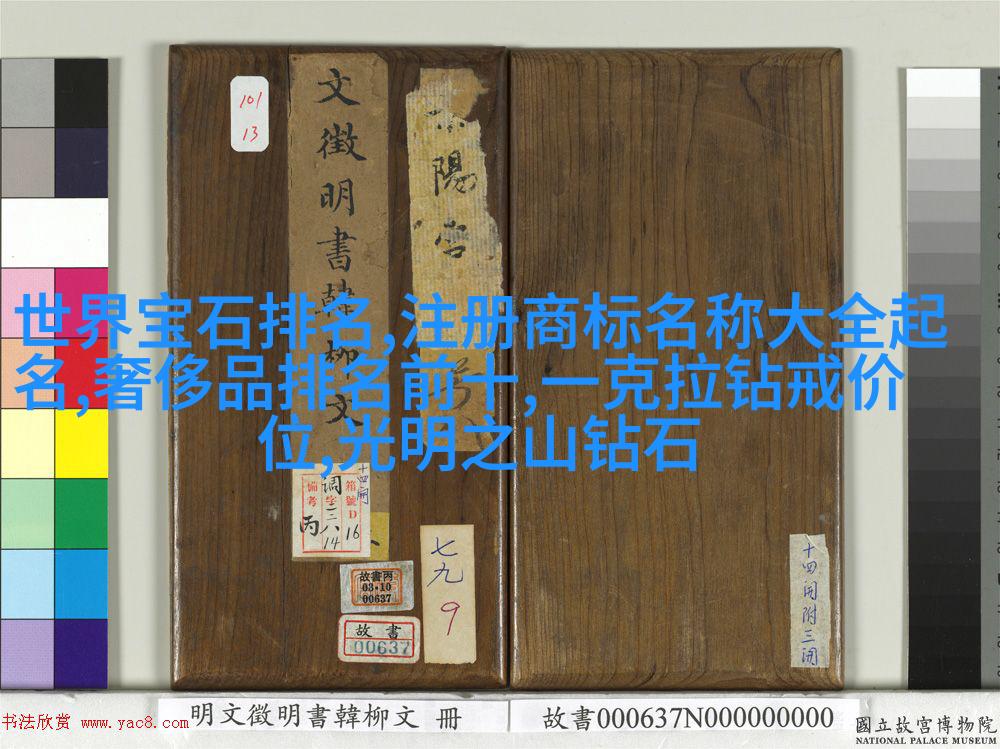 101
13
文徵明書韓柳文
陽宮
世界宝石排名,注册商标名称大全起
名,奢侈品排名前十,一克拉钻戒价
位,光明之山钻石
十四開
箱號D16
调字三八14
備考丙
故書丙
03·10
00637
故書
00637
七九
9
十四開附三開
明文徵明書韓柳文 冊
故書000637N000000000
國立故宮博物院
NATIONAL PALACE MUSEUM
书法欣赏 www.yac8.com